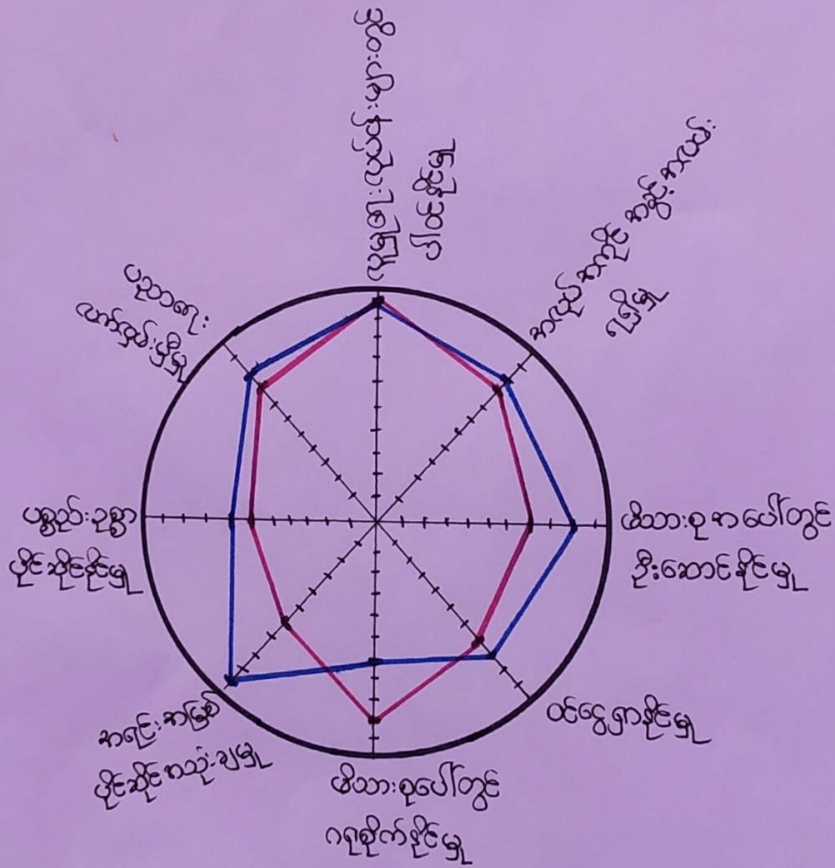 အလုပ်အကိုင် အခွင့်အလမ်း
ရရှိမှု
မိသားစုအပေါ်တွင်
ဦးဆောင်နိုင်မှု
ဝင်ငွေရှာနိုင်မှု
မိသားစုပေါ်တွင်
ဂရုစိုက်နိုင်မှု
အရင်းအမြစ်
ပိုင်ဆိုင်အသုံးချမှု
ပစ္စည်းဥစ္စာ
ပိုင်ဆိုင်နိုင်မှု
ပညာရေး
လက်လှမ်းမှီမှု